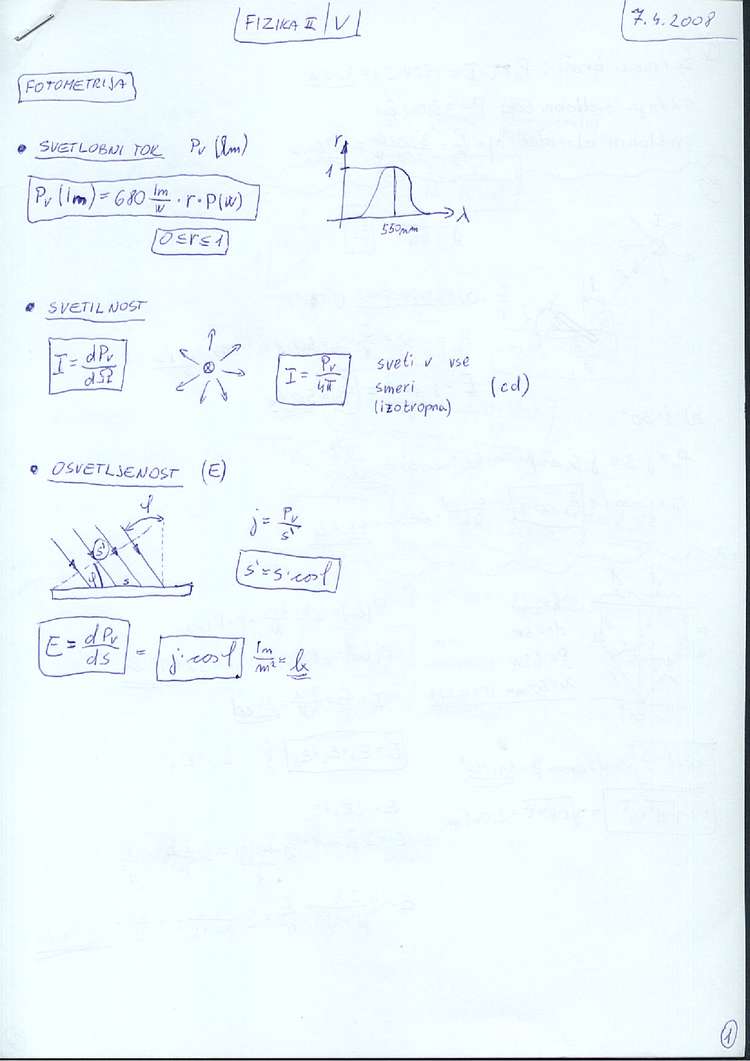 FIZIKA II / V
7.4.2008
FOTOMETRIJA
• SVETLOBNI TOK Pv (lm)
Pv (lm) = 680 lm/W · r · P(W)
0 ≤ r ≤ 1
r
1
550nm
λ
• SVETILNOST
I = dPv/dΩ
I = Pv/4π
sveti v vse
smeri (cd)
(izotropna)
• OSVETLJENOST (E)
φ
S'
φ
S
j = Pv/S'
S' = S · cosφ
E = dPv/dS = j · cosφ lm/m² = lx
1